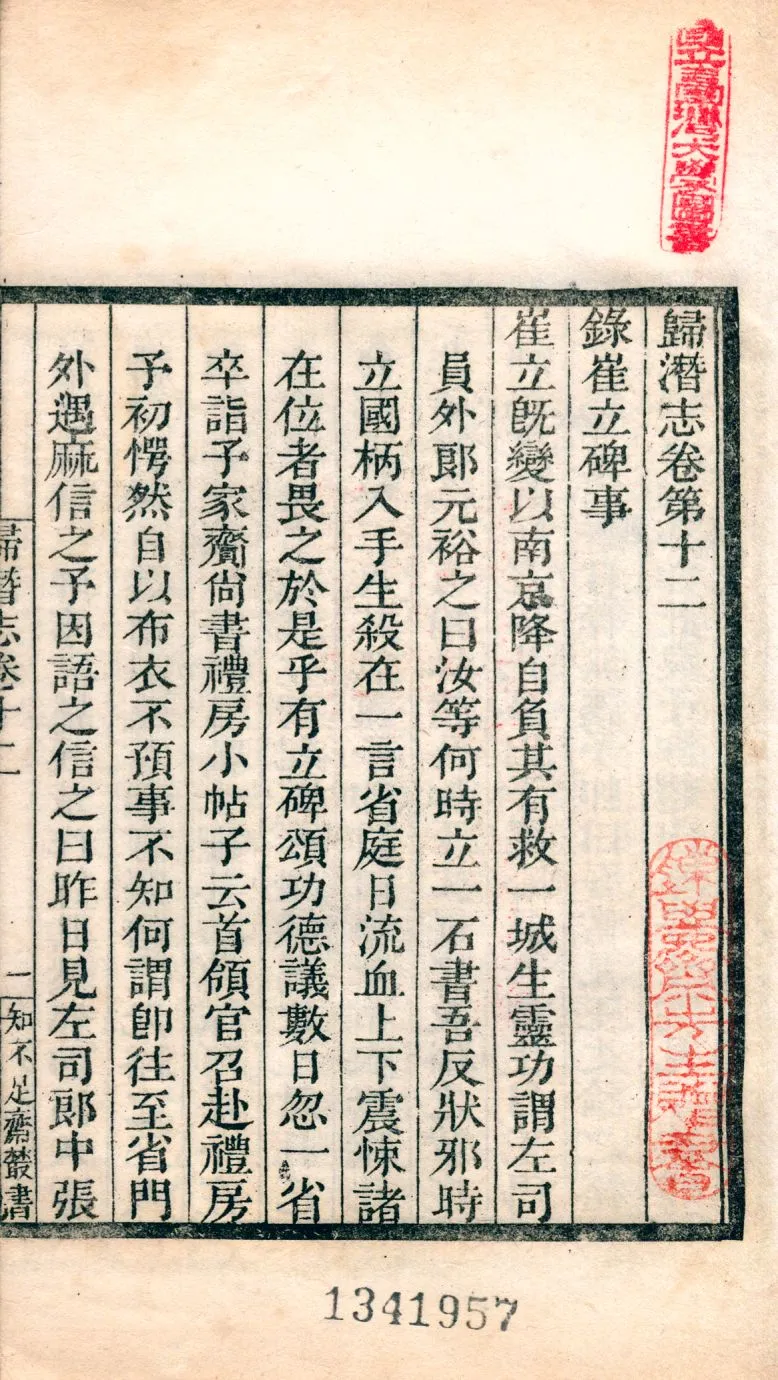 國立臺灣大學圖書
歸潛志卷第十二
錄崔立碑事
崔立旣變以南京降自負其有救一城生靈功謂左司
員外郎元裕之曰汝等何時立一石書吾反狀邪時
立國柄入手生殺在一言省庭日流血上下震悚諸
在位者畏之於是乎有立碑頌功德議數日忽一省
卒詣予家齎尙書禮房小帖子云首領官召赴禮房
予初愕然自以布衣不預事不知何謂卽往至省門
外遇麻信之予因語之信之曰昨日見左司郎中張
歸潛志卷十二
一
知不足齋叢書
1341957